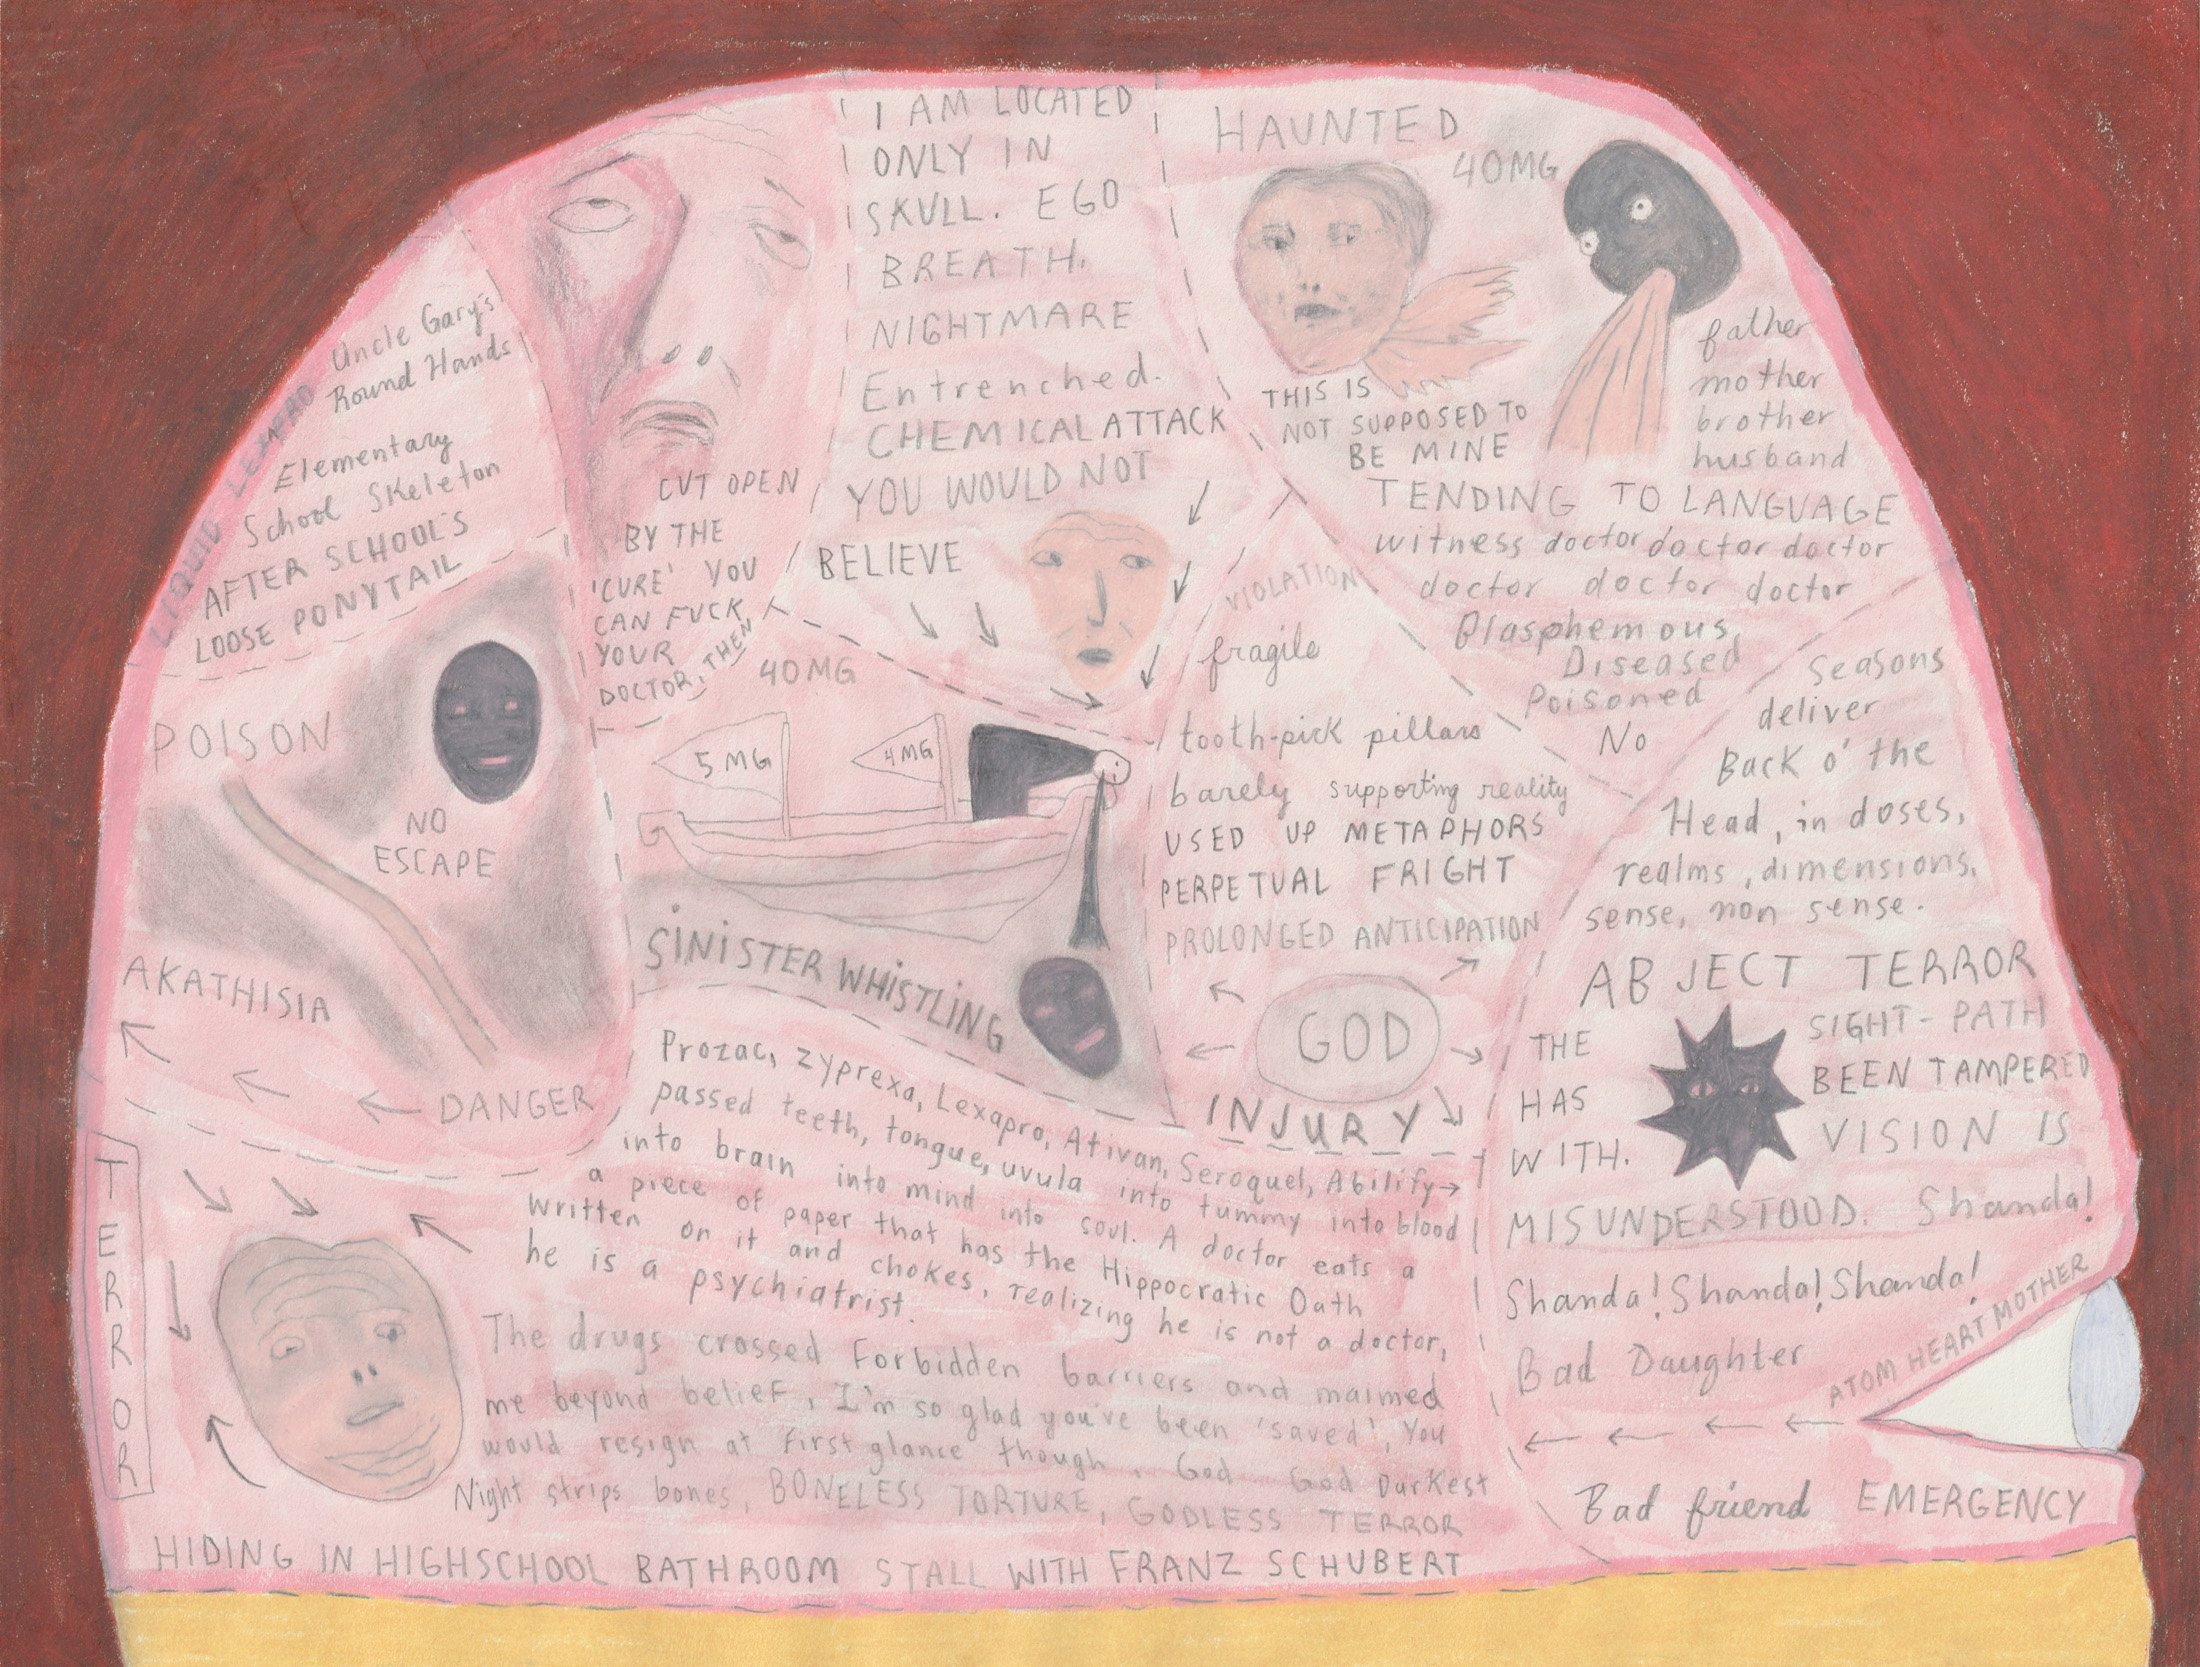 LIQUID LEXAPRO
Uncle Gary's
Round Hands
Elementary
School Skeleton
AFTER SCHOOL'S
LOOSE PONYTAIL
CUT OPEN
BY THE
'CURE' YOU
CAN FUCK
YOUR
DOCTOR, THEN
I AM LOCATED
ONLY IN
SKULL. EGO
BREATH.
NIGHTMARE
Entrenched.
CHEMICAL ATTACK
YOU WOULD NOT
BELIEVE
HAUNTED
40MG
THIS IS
NOT SUPPOSED TO
BE MINE
father
mother
brother
husband
TENDING TO LANGUAGE
witness doctor doctor doctor
doctor doctor doctor
Blasphemous,
Diseased
Poisoned
No
POISON
NO
ESCAPE
AKATHISIA
DANGER
40MG
5MG
4MG
SINISTER WHISTLING
VIOLATION
fragile
tooth-pick pillars
barely supporting reality
USED UP METAPHORS
PERPETUAL FRIGHT
PROLONGED ANTICIPATION
GOD
INJURY
Seasons
deliver
Back o' the
Head, in doses,
realms, dimensions,
sense, non sense.
ABJECT TERROR
THE SIGHT-PATH
HAS BEEN TAMPERED
WITH. VISION IS
MISUNDERSTOOD. Shanda!
Shanda! Shanda! Shanda!
Bad Daughter
ATOM HEART MOTHER
Bad friend EMERGENCY
TERROR
Prozac, zyprexa, Lexapro, Ativan, Seroquel, Abilify→
passed teeth, tongue, uvula into tummy into blood
into brain into mind into soul. A doctor eats a
a piece of paper that has the Hippocratic Oath
written on it and chokes, realizing he is not a doctor,
he is a psychiatrist.
The drugs crossed forbidden barriers and maimed
me beyond belief, I'm so glad you've been 'saved', You
would resign at first glance though. God God Darkest
Night strips bones, BONELESS TORTURE, GODLESS TERROR
HIDING IN HIGHSCHOOL BATHROOM STALL WITH FRANZ SCHUBERT